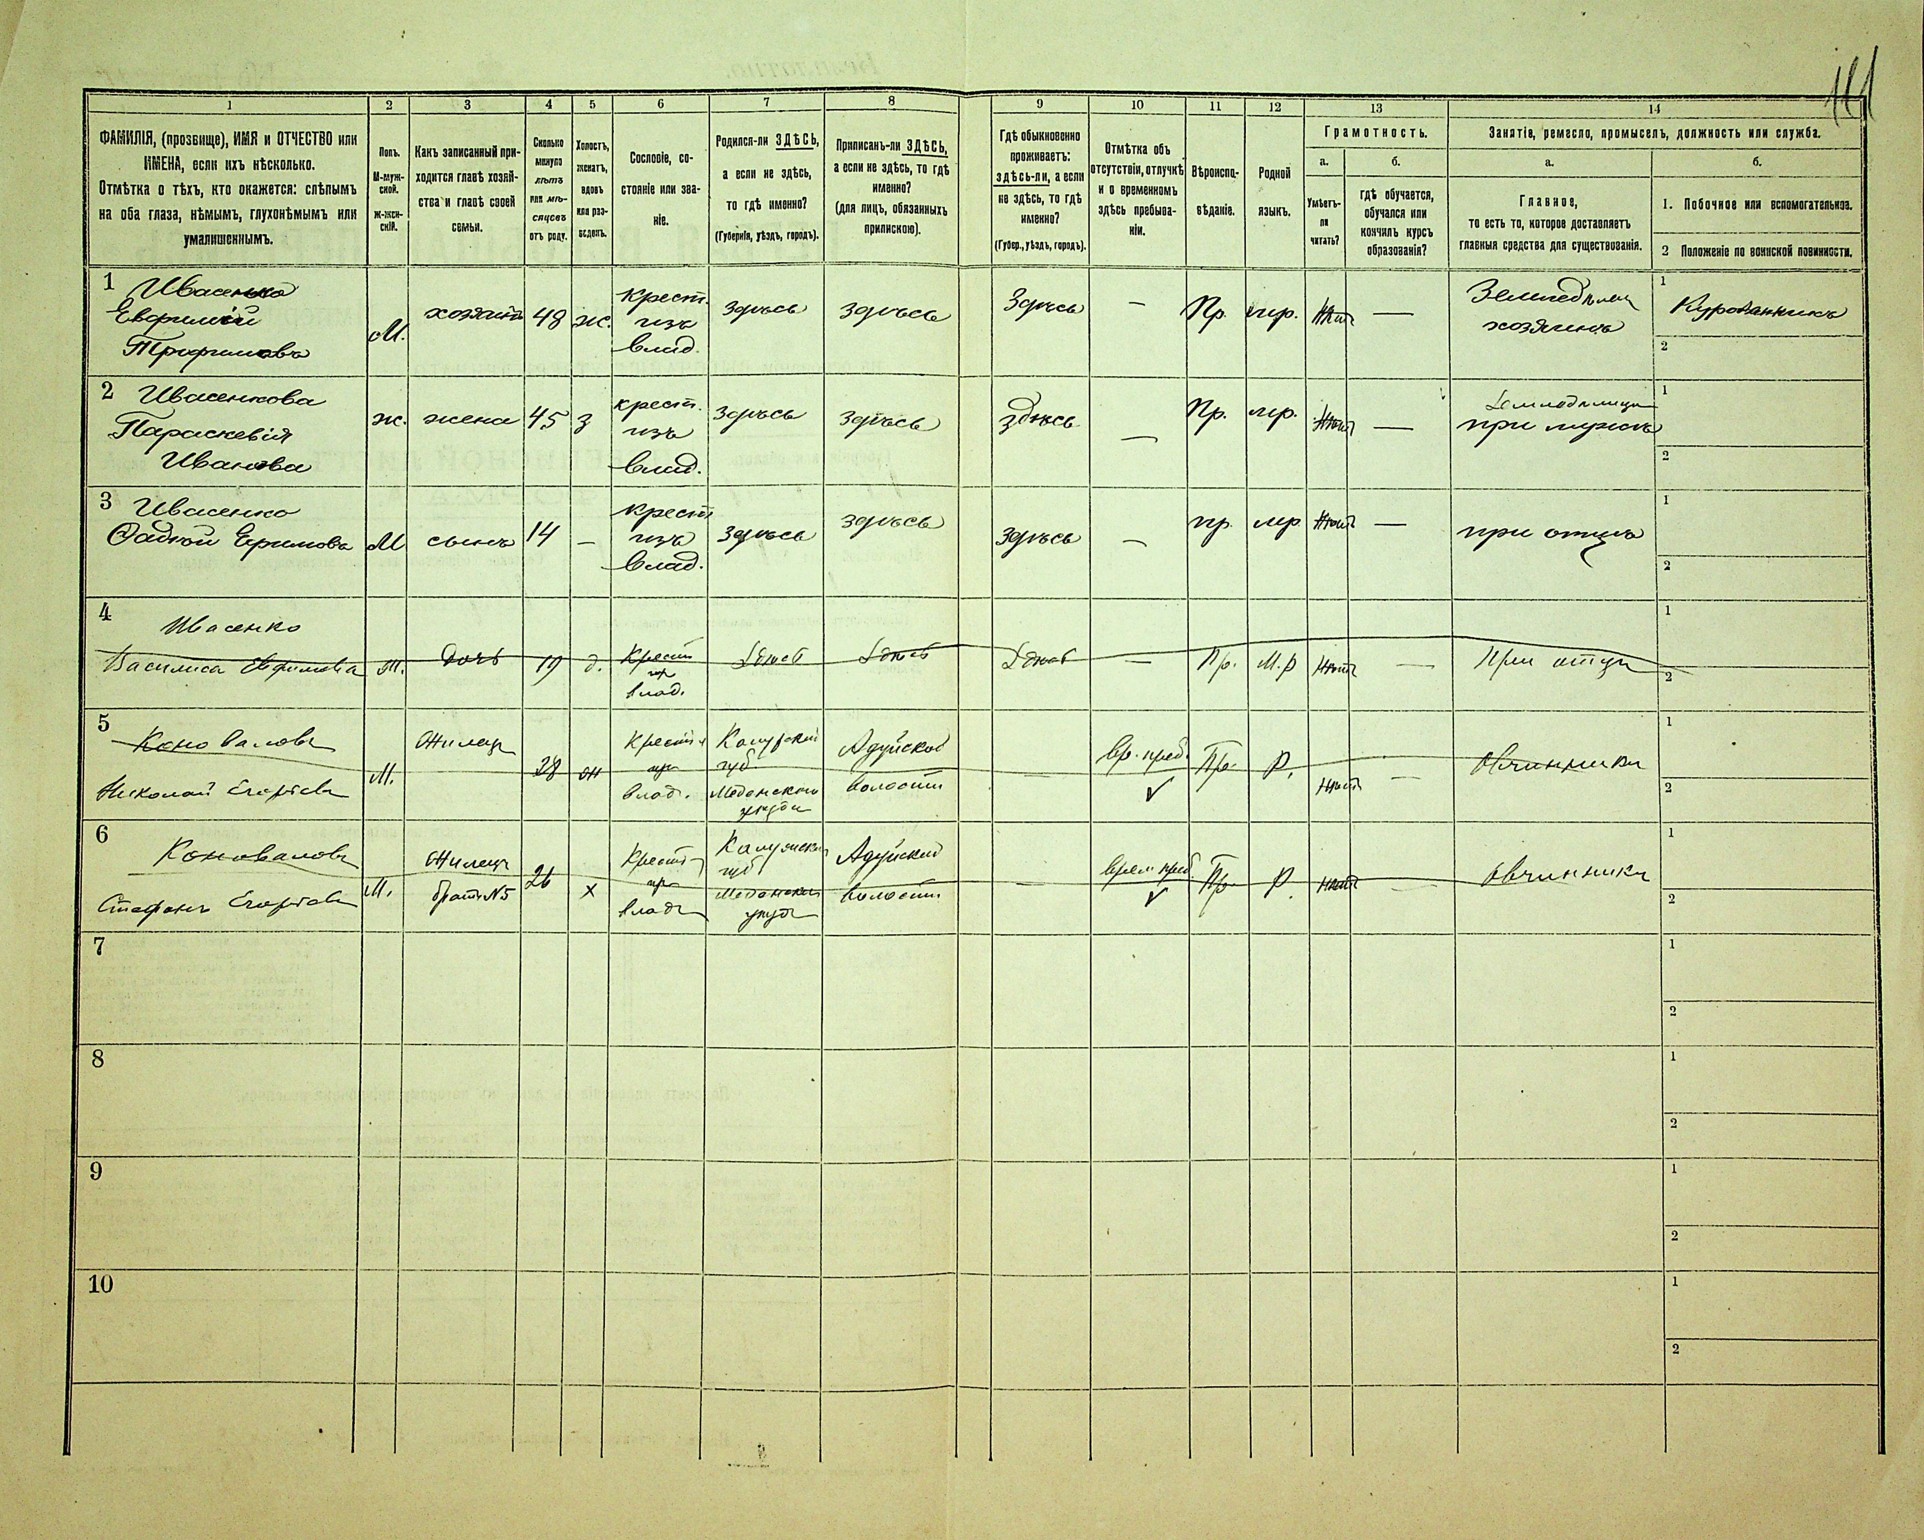 111
1 2 3 4 5 6 7 8 9 10 11 12 13 14
ФАМИЛІЯ, (прозвище), ИМЯ и ОТЧЕСТВО или
ИМЕНА, если ихъ нѣсколько.
Отмѣтка о тѣхъ, кто окажется: слѣпымъ
на оба глаза, нѣмымъ, глухонѣмымъ или
умалишеннымъ.
Полъ.
М-муж-
ской.
ж-жен-
скій.
Какъ записанный при-
ходится главѣ хозяй-
ства и главѣ своей
семьи.
Сколько
минуло
лѣтъ
или мѣ-
сяцевъ
отъ роду.
Холостъ,
женатъ,
вдовъ
или раз-
веденъ.
Сословіе, со-
стояніе или зва-
ніе.
Родился-ли ЗДѢСЬ,
а если не здѣсь,
то гдѣ именно?
(Губернія, уѣздъ, городъ).
Приписанъ-ли ЗДѢСЬ,
а если не здѣсь, то гдѣ
именно?
(для лицъ, обязанныхъ
припискою).
Гдѣ обыкновенно
проживаетъ:
здѣсь-ли, а если
не здѣсь, то гдѣ
именно?
(Губер., уѣздъ, городъ).
Отмѣтка объ
отсутствіи, отлучкѣ
и о временномъ
здѣсь пребыва-
ніи.
Вѣроиспо-
вѣданіе.
Родной
языкъ.
Грамотность.
а.
Умѣетъ-
ли
читать?
б.
гдѣ обучается,
обучался или
кончилъ курсъ
образованія?
Занятіе, ремесло, промыселъ, должность или служба.
а.
Главное,
то есть то, которое доставляетъ
главныя средства для существованія.
б.
1. Побочное или вспомогательное.
2 Положеніе по воинской повинности.
1 Ивасенко
Евфимій
Трофимовъ
М.
хозяинъ
48
ж.
крест.
изъ
влад.
здѣсь
здѣсь
Здѣсь
—
Пр.
мр.
Нѣтъ
—
Земледѣлец
хозяинъ
1
2
2 Ивасенкова
Параскевія
Иванова
ж.
жена
45
з
крест.
изъ
влад.
здѣсь
здѣсь
здѣсь
—
Пр.
мр.
Нѣтъ
—
при мужѣ
1
2
3 Ивасенко
М
сынъ
14
—
крест
изъ
влад.
здѣсь
здѣсь
здѣсь
—
пр.
мр
Нѣтъ
—
при отцѣ
1
2
4 Ивасенко
Василиса Ефимова
ж.
дочь
19
д.
Крест
пр
влад.
Здѣсь
Здѣсь
Здѣсь
—
Пр.
М.р
Нѣтъ
—
При отцѣ
1
2
5 Коноваловъ
Николай Егоровъ
М.
Жилецъ
28
ж
Крест
пр
влад.
Калужской
губ
Медынскаго
уѣзда
Адуйской
волости
вр. преб.
Пр.
Р.
Нѣтъ
—
Овчинникъ
1
2
6 Коноваловъ
Стефанъ Егоровъ
М.
Жилецъ
братъ №5
26
х
Крест
пр
влад
Калужской
губ
Медынскаго
уѣзда
Адуйской
волости
—
врем преб.
Пр.
Р.
Нѣтъ
—
Овчинникъ
1
2
7
1
2
8
1
2
9
1
2
10
1
2